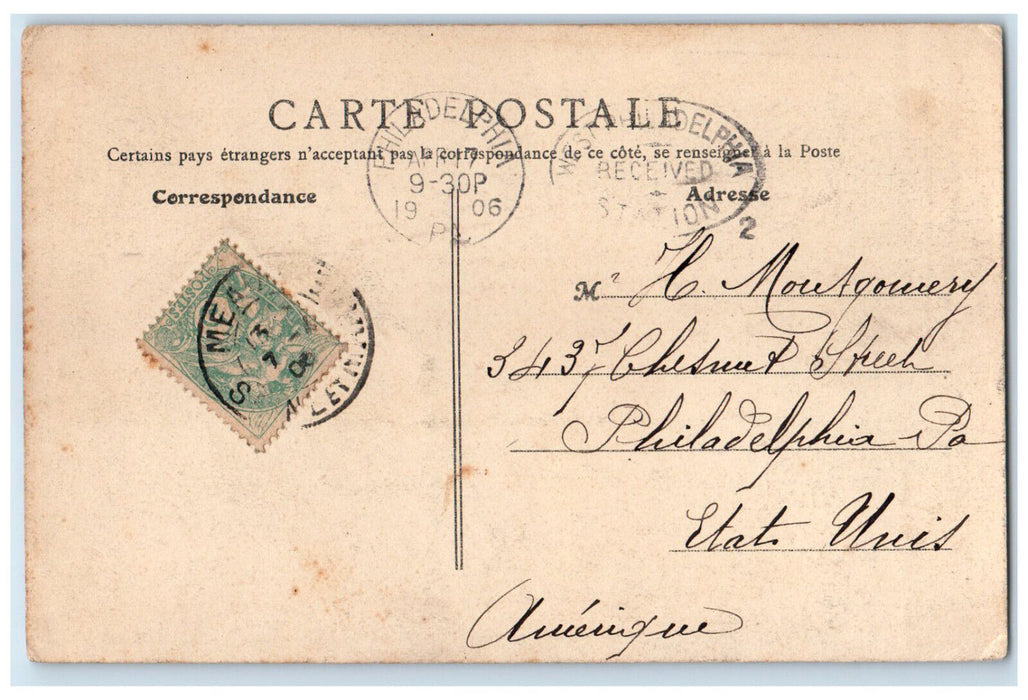 CARTE POSTALE
Certains pays étrangers n'acceptant pas la correspondance de ce côté, se renseigner à la Poste
PHILADELPHIA
APR 17
9-30P
19 06
PA
WEST PHILADELPHIA
RECEIVED
STATION
2
Correspondance
Adresse
Mr H. Montgomery
3437 Chesnut Street
Philadelphia Pa
Etats Unis
Amérique
POSTES
ET M.